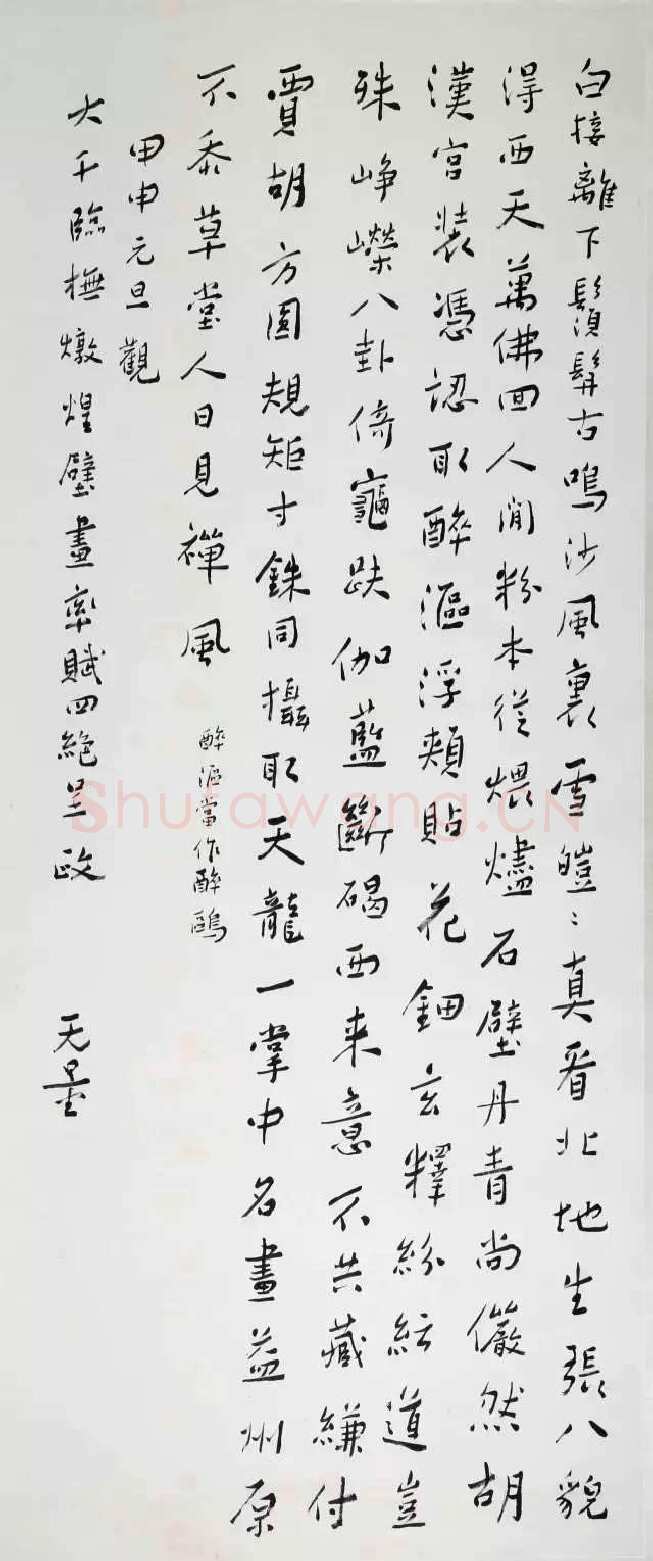 白接離下鬚髯古鳴沙風裏雪皚〻真看北地生張八貌
得西天萬佛回人間粉本從煨燼石壁丹青尚儼然胡
漢宮裝憑認取醉漚浮頰貼花鈿玄釋紛紜道豈
殊崢嶸八卦倚龜趺伽藍斷碣西来意不共藏縑付
賈胡方圓規矩寸銖同攝取天龍一掌中名畫益州原
不忝草堂人日見禪風 醉漚當作醉鷗
甲申元旦觀
大千臨撫燉煌壁畫率賦四絕呈政 无量
Shufawang.CN